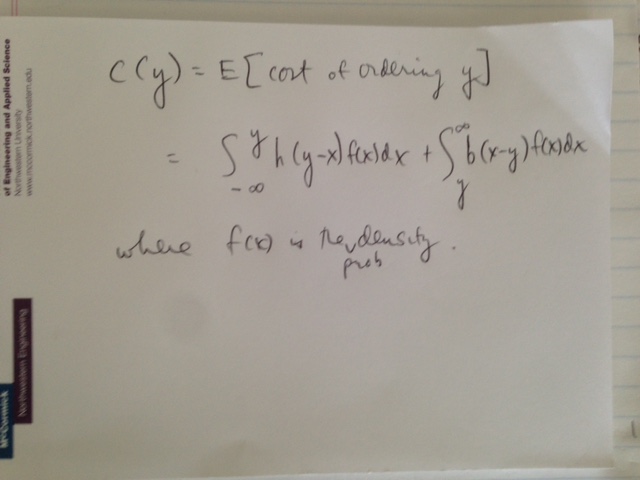 McCormick
Northwestern Engineering
of Engineering and Applied Science
Northwestern University
www.mccormick.northwestern.edu
C(y) = E[cost of ordering y]
= ∫_{-∞}^{y} h(y-x)f(x)dx + ∫_{y}^{∞} b(x-y)f(x)dx
where f(x) is the prob density.